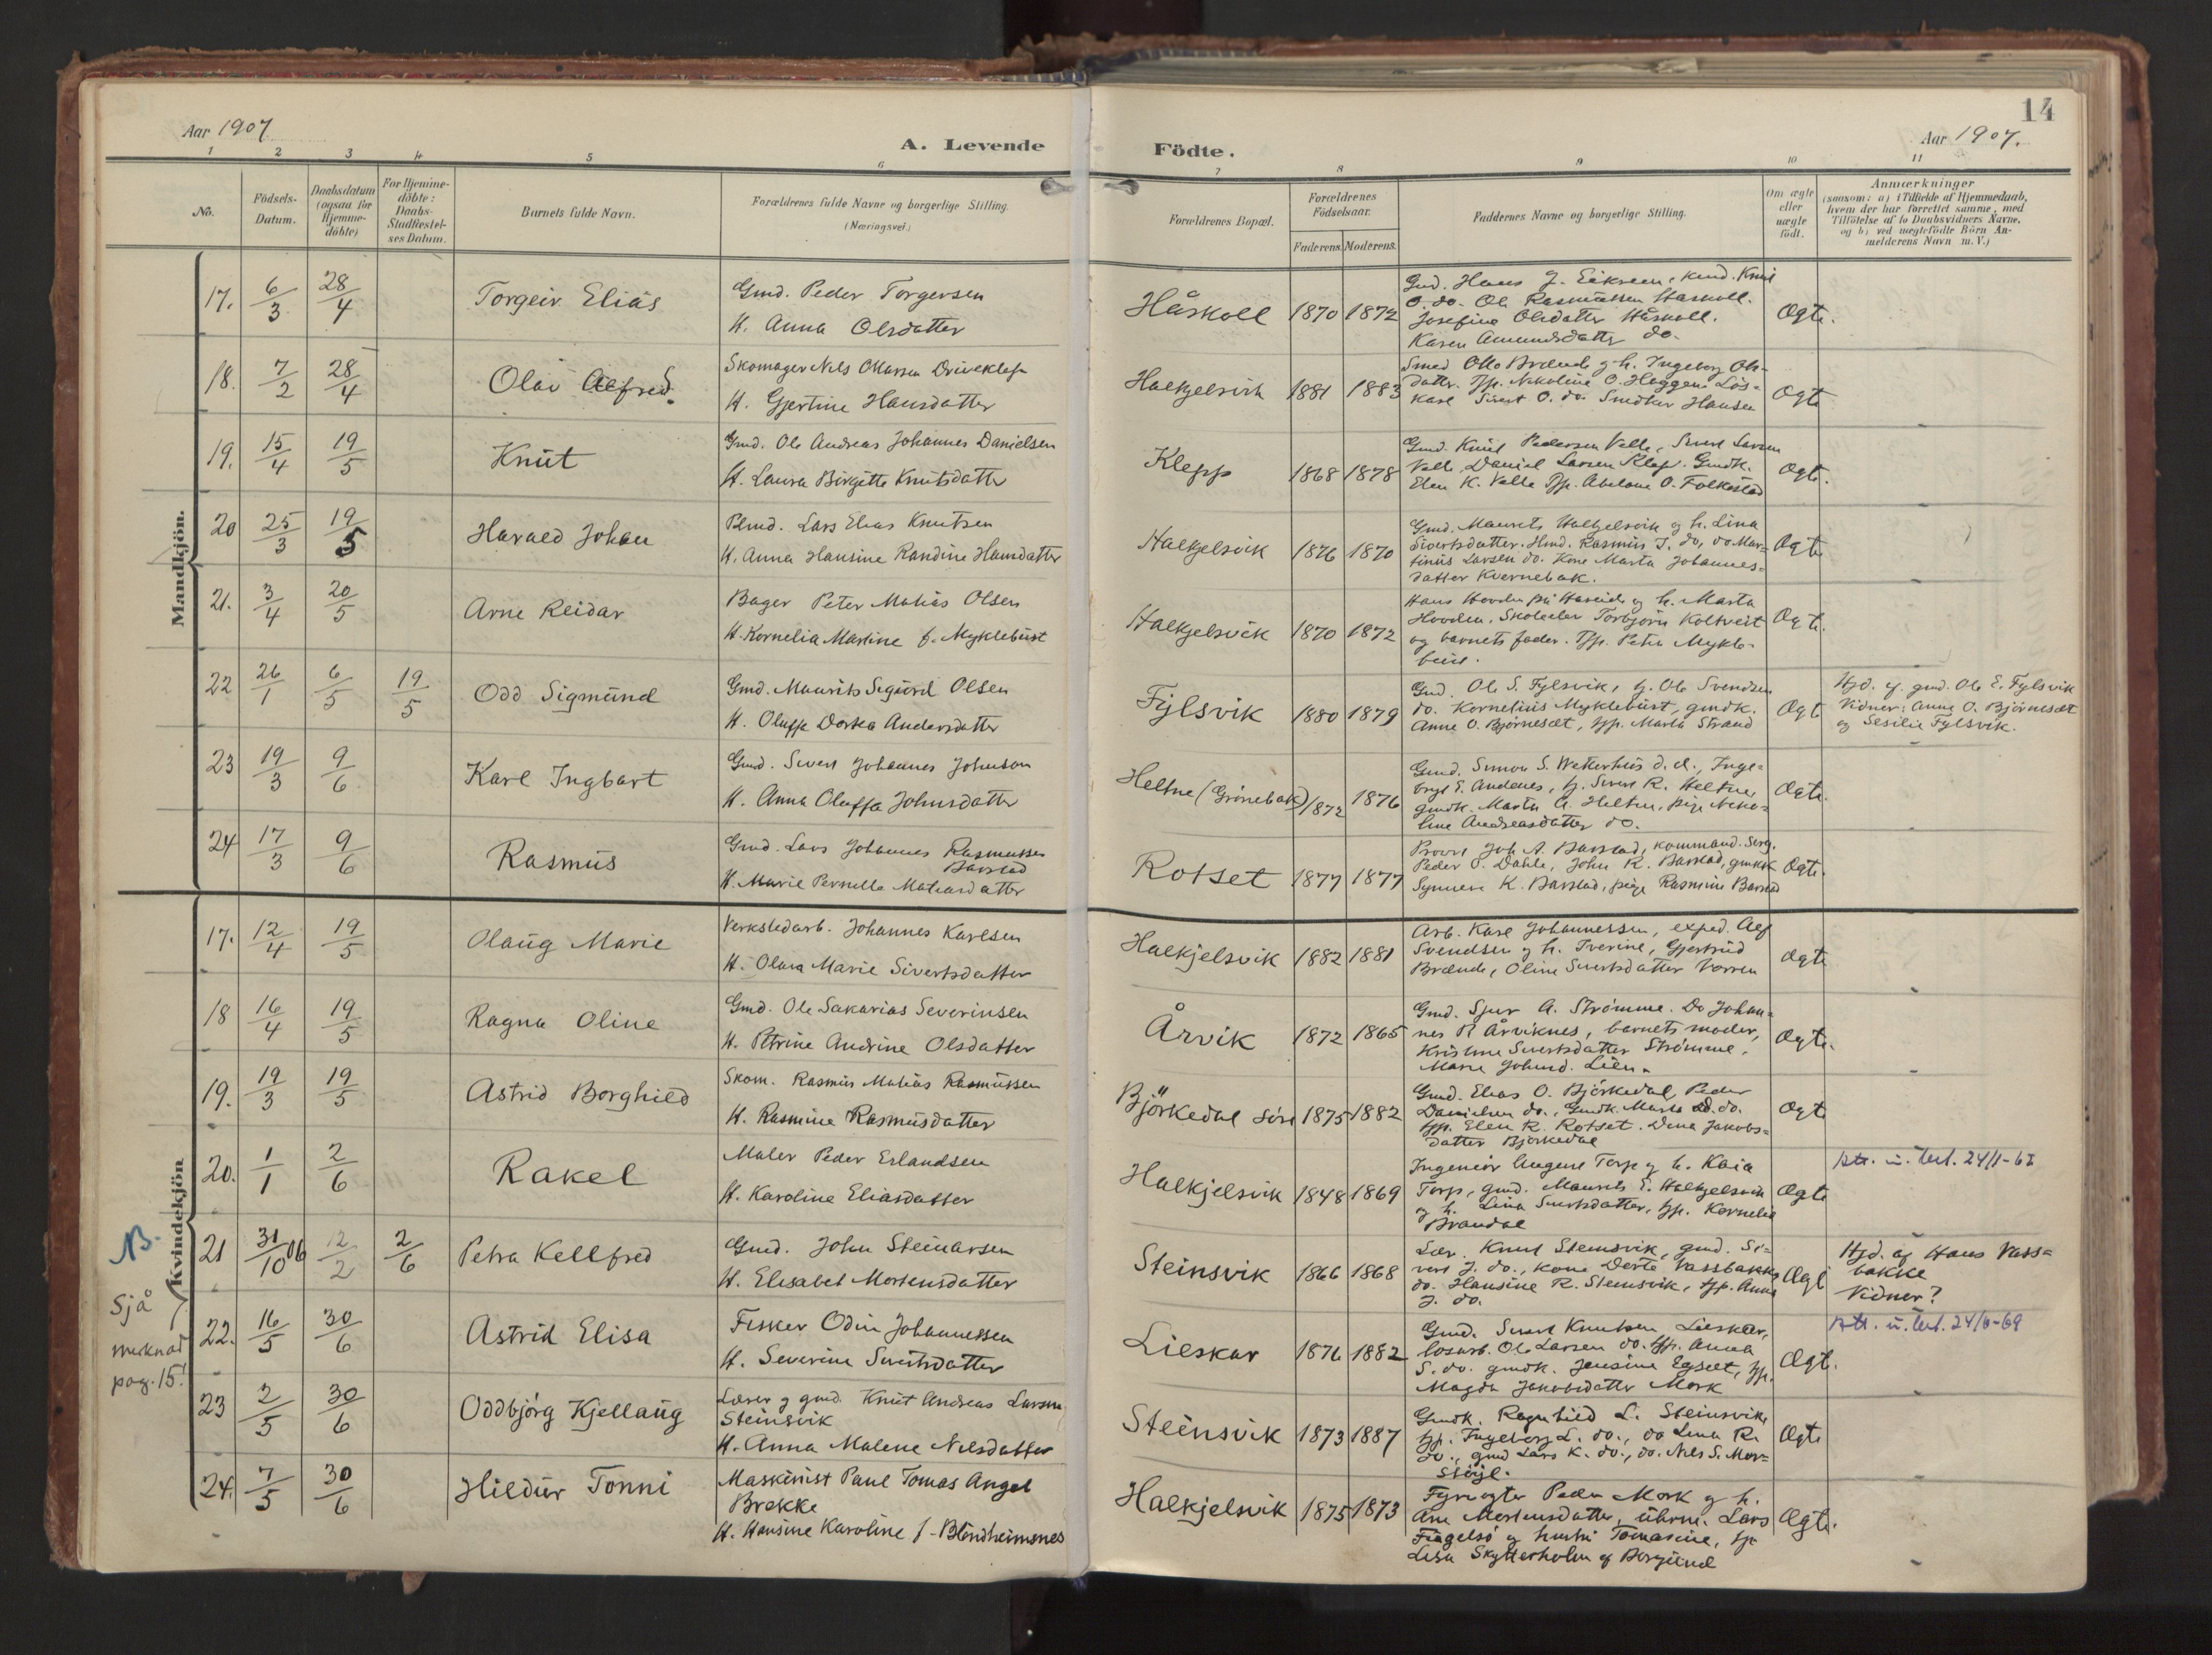 14
Aar 1907
Aar 1907.
A. Levende Födte.
1 2 3 4 5 6 7 8 9 10 11
No.
Födsels-
Datum.
Daabsdatum
(ogsaa for
Hjemme-
döbte)
For Hjemme-
döbte:
Daabs-
Stadfæstel-
ses Datum.
Barnets fulde Navn.
Forældrenes fulde Navne og borgerlige Stilling.
(Næringsvei.)
Forældrenes Bopæl.
Forældrenes
Födselsaar.
Faderens. Moderens.
Faddernes Navne og borgerlige Stilling.
Om ægte
eller
uægte
födt.
Anmærkninger
(saasom: a) i Tilfælde af Hjemmedaab,
hvem der har forrettet samme, med
Tilföielse af to Daabsvidners Navne,
og b) ved uægtefödte Börn An-
melderens Navn m. V.)
Mandkjön.
17. 6/3 28/4 Torgeir Elias
Gmd. Peder Torgersen
H. Anna Olsdatter
Håskoll 1870 1872
Gmd. Hans J. Eiksem, kmd. Knut
O. do. Ole Rasmussen Haskoll.
Josefine Olsdatter Håskoll.
Karen Amundsdatter do.
Ogte.
18. 7/2 28/4 Olav Alfred.
Skomager Nels Olsen Driveklep
H. Gjertine Hansdatter
Halkjelsvik 1881 1883
Smed Otto Brænde og h. Ingeborg Ols-
datter. Pp. Nikoline O. Heggen. Lös-
karl Sivert O. do. Snedker Hansen
Ogte
19. 15/4 19/5 Knut
Gmd. Ole Andreas Johannes Danielsen
H. Laura Birgitte Knutsdatter
Klepp 1868 1878
Gmd. Knut Pedersen Velle, Sivert Larsen
Velle, Daniel Larsen Klep. Gmdk.
Elen K. Velle Pp. Abelone O. Folkestad
Ogte.
20 25/3 19/5 Harald Johan
Plmd. Lars Elias Knutsen
H. Anna Hansine Randine Hansdatter
Halkjelsvik 1876 1870
Gmd. Maurits Halkjelsvik og h. Lina
Sivertsdatter. Hmd. Rasmus J. do, do Mar-
tinus Larsen do. Kone Marta Johannes-
datter Kvernebak.
Ogte
21. 3/4 20/5 Arne Reidar
Bager Peter Matias Olsen
H. Kornelia Martine f. Myklebust
Halkjelsvik 1870 1872
Hans Hovden på Hareide og h. Marta
Hovden. Skoleeler Torbjörn Koltveit
og barnets fader. Pp. Petra Mykle-
bust.
Ogt.
22 26/1 6/5 19/5 Odd Sigmund
Gmd. Maurits Sigurd Olsen
H. Oluffa Dortea Andersdatter
Fylsvik 1880 1879
Gmd. Ole S. Fylsvik, g. Ole Svendsen
do. Kornelius Myklebust, gmdk.
Anne O. Bjørneset, pp. Marta Strand
Ogt
Hjd. af gmd. Ole E. Fylsvik
Vidner: Anne O. Björneset
og Sesilie Fylsvik.
23 19/3 9/6 Karl Ingbart
Gmd. Sivert Johannes Johnsen
H. Anna Oluffa Johnsdatter
Heltne (Grönebak) 1872 1876
Gmd. Simon S. Wetterhus d. e., Inge-
brigt E. Andenes, g. Sivert R. Heltne,
gmdk. Marta A. Heltne, pige Niko-
line Andreasdatter do.
Ogte.
24 17/3 9/6 Rasmus
Gmd. Lars Johannes Rasmussen
Barstad
H. Marie Pernelle Matiasdatter
Rotset 1877 1877
Provst Joh A. Barstad, kommand. serg.
Peder P. Dahle, John R. Barstad, gmkk
Synneve K. Barstad, pige Rasmine Barstad
Ogte.
Kvindekjön
17. 12/4 19/5 Olaug Marie
Verkstedarb. Johannes Karlsen
H. Olava Marie Sivertsdatter
Halkjelsvik 1882 1881
Arb. Karl Johannessen, exped. Alf
Svendsen og h. Iverine, Gjertrud
Brænde, Oline Sivertsdatter Vorren
Ogte
18 16/4 19/5 Ragna Oline
Gmd. Ole Sakarias Severinsen
H. Petrine Andrine Olsdatter
Årvik 1872 1865
Gmd. Sjur A. Strömme. Do Johan-
nes N Årviknes, barnets moder,
Kristine Sivertsdatter Strömme,
Marie Johnsd. Lien.
Ogte.
19. 19/3 19/5 Astrid Borghild
Skom. Rasmus Matias Rasmussen
H. Rasmine Rasmusdatter
Björkedal söre 1875 1882
Gmd. Elias O. Björkedal, Peder
Danielsen do., Gmdk. Marte Ad. do.
Pp. Elen R. Rotset. Dina Jakobs-
datter Björkedal
Ogt
20. 1/1 2/6 Rakel
Maler Peder Erlandsen
H. Karoline Eliasdatter
Halkjelsvik 1848 1869
Ingeniör August Torp og h. Kaia
Torp, gmd. Maurits E. Halkjelsvik
og h. Lina Sivertsdatter, pp. Kornelia
Brandal
Ogte
Att. u. tert. 24/1-67
NB.
21 31/10 06 12/2 2/6 Petra Kellfred
Gmd. John Steinarsen
H. Elisabet Mortensdatter
Steinsvik 1866 1868
Lær. Knut Steinsvik, gmd. Si-
vert J. do., kone Derte Vassbakke
do. Hansine R. Steinsvik, pp. Anna
J. do.
Ogt
Hjd. af Hans Vass-
bakke
Vidner?
Sjå
merknad
pag. 15!
22. 16/5 30/6 Astrid Elisa
Fisker Odin Johannessen
H. Severine Sivertsdatter
Lieskar 1876 1882
Gmd. Sivert Knutsen Lieskar,
losarb. Ole Larsen do. pp. Anna
S. do. gmdk. Jensine Egset, pp.
Magda Jakobsdatter Mork
Ogt.
Att. u. tert. 24/6-69
23 2/5 30/6 Oddbjörg Kjellaug
Lærer og gmd. Knut Andreas Larsen
Steinsvik
H. Anna Malene Nilsdatter
Steinsvik 1873 1887
Gmdk. Ragnhild L. Steinsvik,
pp. Ingeborg L. do., do Lina R.
do., gmd Lars K. do., do. Nils S. Mor-
stöyl.
Ogte
24. 7/5 30/6 Hildur Tonni
Maskinist Paul Tomas Angel
Brekke
H. Hansine Karoline f. Blindheimsnes
Halkjelsvik 1875 1873
Fyrvogter Peder Mork og h.
Ane Mortensdatter, uhrm. Lars
Fugelsö og hustru Tomasine, pp.
Lisa Skytterholm af Borgund
Ogte.